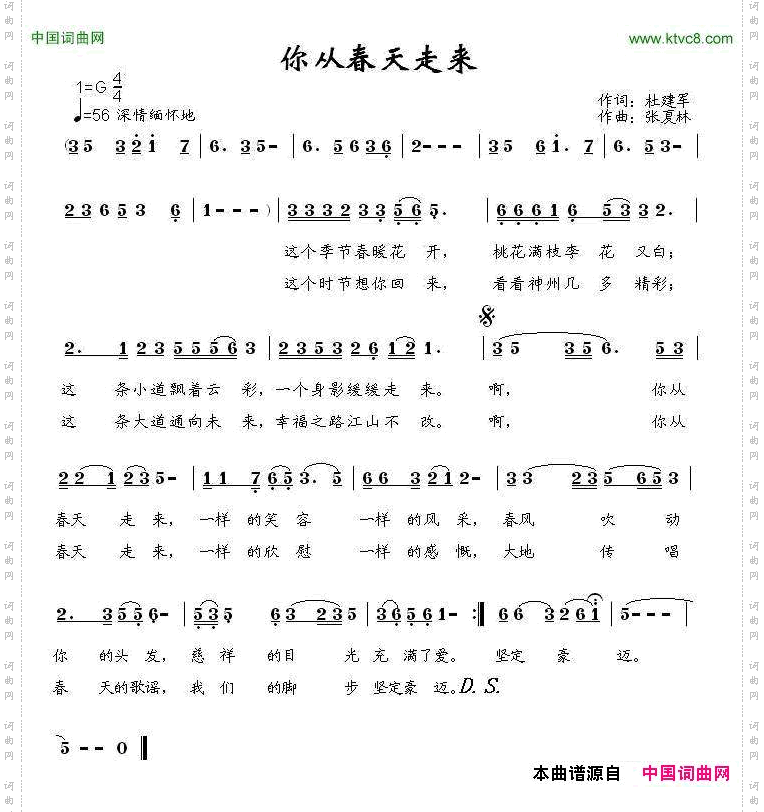 中国词曲网
www.ktvc8.com
你从春天走来
1=G 4/4
♩=56 深情缅怀地
作词：杜建军
作曲：张夏林
(35 32i 7 | 6. 35- | 6. 5636 | 2--- | 35 6i. | 6. 53- |
23653 6 | 1---) | 3332 33 56 5. | 6661 6 53 32. |
这个季节春暖花 开， 桃花满枝李 花 又白；
这个时节想你回 来， 看看神州几 多 精彩；
2. 1 | 23 5556 3 | 2353 26 12 1. | 35 356. 53 |
这 条小道飘着云 彩，一个身影缓缓走 来。 啊， 你从
这 条大道通向未 来，幸福之路江山不 改。 啊， 你从
22 1 235- | 11 7 65 3. 5 | 66 3 2312- | 33 23 5 653 |
春天 走 来， 一样 的笑 容 一样 的风 采，春风 吹 动
春天 走 来， 一样 的欣 慰 一样 的感 慨，大地 传 唱
2. 3556- | 535 63 235 | 36561- :| 66 3261 | 5--- |
你 的头 发，慈 祥 的目 光充 满了爱。 坚定 豪 迈。
春 天的歌谣，我 们 的脚 步 坚定豪 迈。D.S.
5--0 ‖
本曲谱源自 中国词曲网